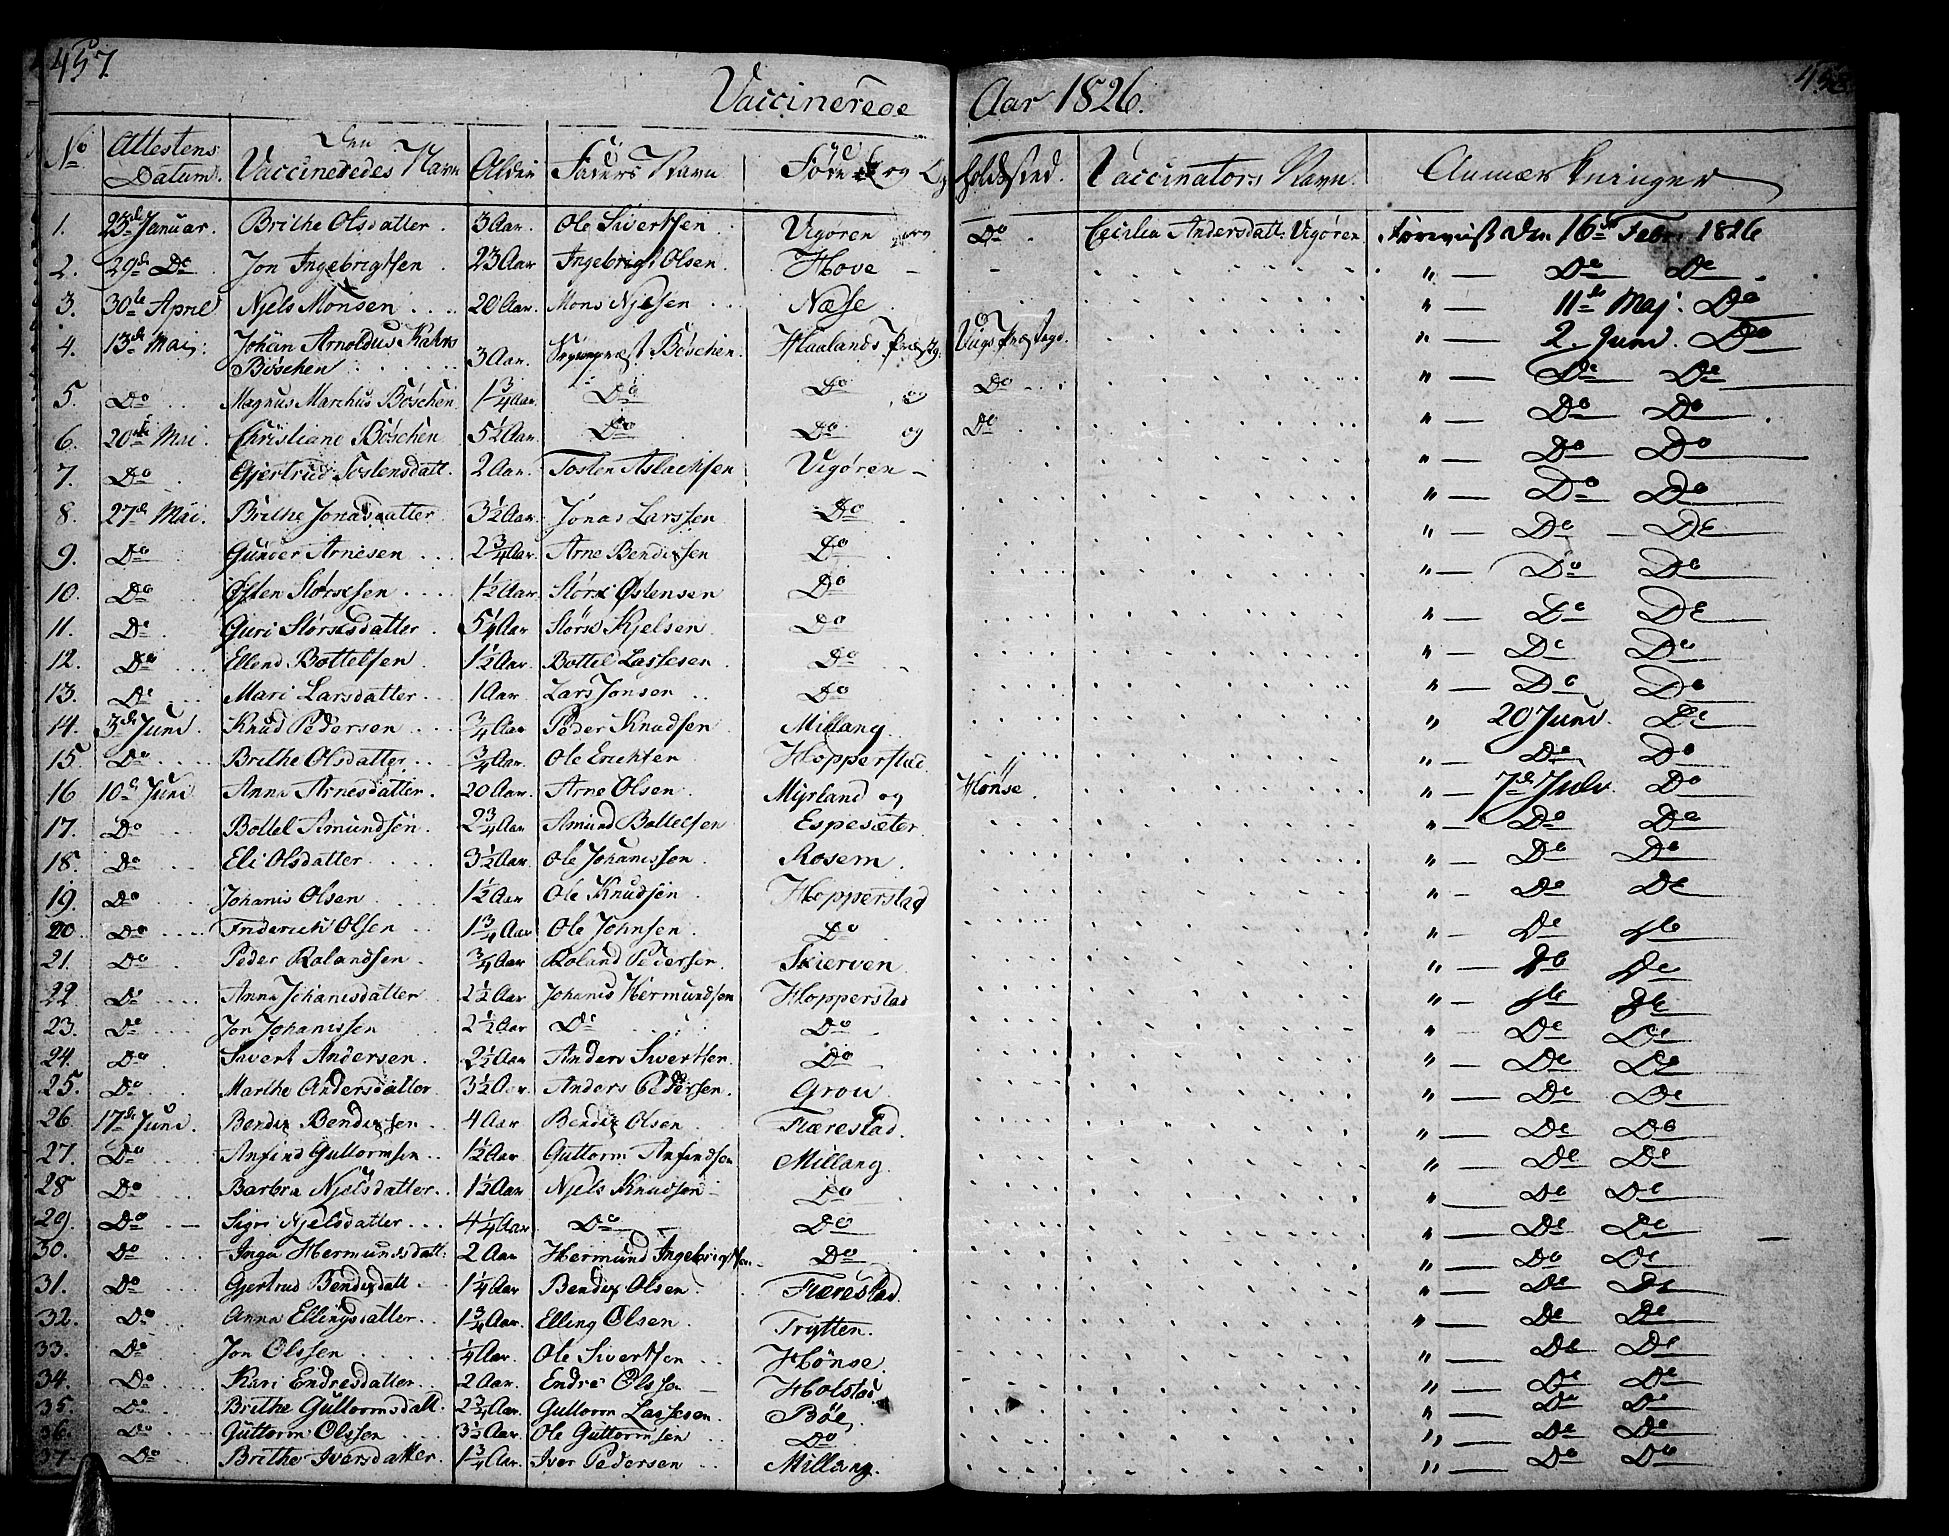 457
Vaccinerede Aar 1826.
No Attestens Datum. Den Vaccineredes Navn Alder Faders Navn Føde og Opholdssted. Vaccinators Navn. Anmærkninger
1. 23de Januar. Brithe Olsdatter. 3 Aar. Ole Sivertsen. Vigøren og Do Cecilia Andersdatt. Vigøren den 16de Febr. 1826
2. 29de Do Jon Ingebrigtsen 23 Aar Ingebrigt Olsen. Hove - " — Do Do
3. 30te April Njels Monsen 20 Aar Mons Njelsen Næse " — 11te Maj. Do
4. 13de Mai. Johan Arnoldus Rahrs Bøschen 3 Aar. Bøschen. Haalands Præstg. Vigs Præstegd. " — 2. Juni. Do
5. Do Magnus Marchus Bøschen 1 3/4 Aar. Do Do og Do " — Do Do
6. 20de Mai. Christiane Bøschen 5 1/2 Aar. Do Do og Do " — Do Do
7. Do Gjertrud Tostensdatt. 2 Aar. Tosten Aslachsen Vigøren - " — Do Do
8. 27de Mai. Brithe Jonasdatter 3 1/2 Aar. Jonas Larssen Do " — Do Do
9. Do Gunder Arnesen 2 3/4 Aar. Arne Bendixsen Do " — Do Do
10. Do Østen Størksen 1 1/2 Aar. Størk Østensen Do " — Do Do
11. Do Guri Størksdatter 5 1/4 Aar Størk Kjelsen. Do " — Do Do
12. Do Ellend Bottelsen 1 1/2 Aar Bottel Lassesen Do " — Do Do
13. Do Mari Larsdatter 1 Aar Lars Jonsen Do " — Do Do
14. 3de Juni Knud Pedersen 3/4 Aar Peder Knudsen Millang " 20 Juni. Do
15. Do Brithe Olsdatter 3/4 Aar. Ole Erichsen Hopperstad. " — Do Do
16 10de Juni Anna Arnesdatter. 20 Aar. Arne Olsen Myrland og Hønse. " — 7de Juli. Do
17. Do Bottel Amundsøn. 2 3/4 Aar Amund Bottelsen Espesæter " — Do Do
18. Do Eli Olsdatter 3 1/2 Aar Ole Johanissøn Rosem " — Do Do
19. Do Johanis Olsen 1 1/2 Aar Ole Knudsøn Hopperstad " — Do Do
20 Do Friderich Olsen 1 3/4 Aar Ole Johnsen. Do " — Do Do
21. Do Peder Rolandsen 3/4 Aar Roland Pedersen Skierven " — Do Do
22 Do Anna Johanisdatter 2 1/2 Aar Johanis Hermundsøn Hopperstad " — Do Do
23. Do Jon Johanissen 2 1/2 Aar Do Do " — Do Do
24. Do Sivert Andersen 2 1/2 Aar Anders Sivertsen. Do " — Do Do
25. Do Marthe Andersdatter 3 1/2 Aar Anders Pedersen. Grov " — Do Do
26 17de Juni. Bendix Bendixsen 4 Aar Bendix Olsen Færestad. " — Do Do
27. Do Anfind Guttormsen 1 1/2 Aar Guttorm Anfindsøn Millang. " — Do Do
28 Do Barbra Njelsdatter 1 1/2 Aar Njels Knudsøn Do " — Do Do
29. Do Sigri Njelsdatter 4 1/4 Aar Do Do " — Do Do
30. Do Inga Hermundsdatt. 2 Aar Hermund Ingebrigtsen Do " — Do Do
31. Do Gjertrud Bendixdatt 1 1/4 Aar Bendix Olsen Færestad. " — Do Do
32. Do Anna Ellingsdatter 1 3/4 Aar. Elling Olsen Trytten. " — Do Do
33. Do Jon Olssen 1/4 Aar. Ole Sivertsen Hønse. " — Do Do
34. Do Kari Endresdatter 2 Aar. Endre Olssøn Holstad " — Do Do
35. Do Brithe Guttormsdatt 2 3/4 Aar. Guttorm Lassesen. Bøe, " — Do Do
36. Do Guttorm Olssen 3 1/2 Aar. Ole Guttormsen Do " — Do Do
37. Do Brithe Iversdatter 1 3/4 Aar. Iver Pedersen Millang. " — Do Do